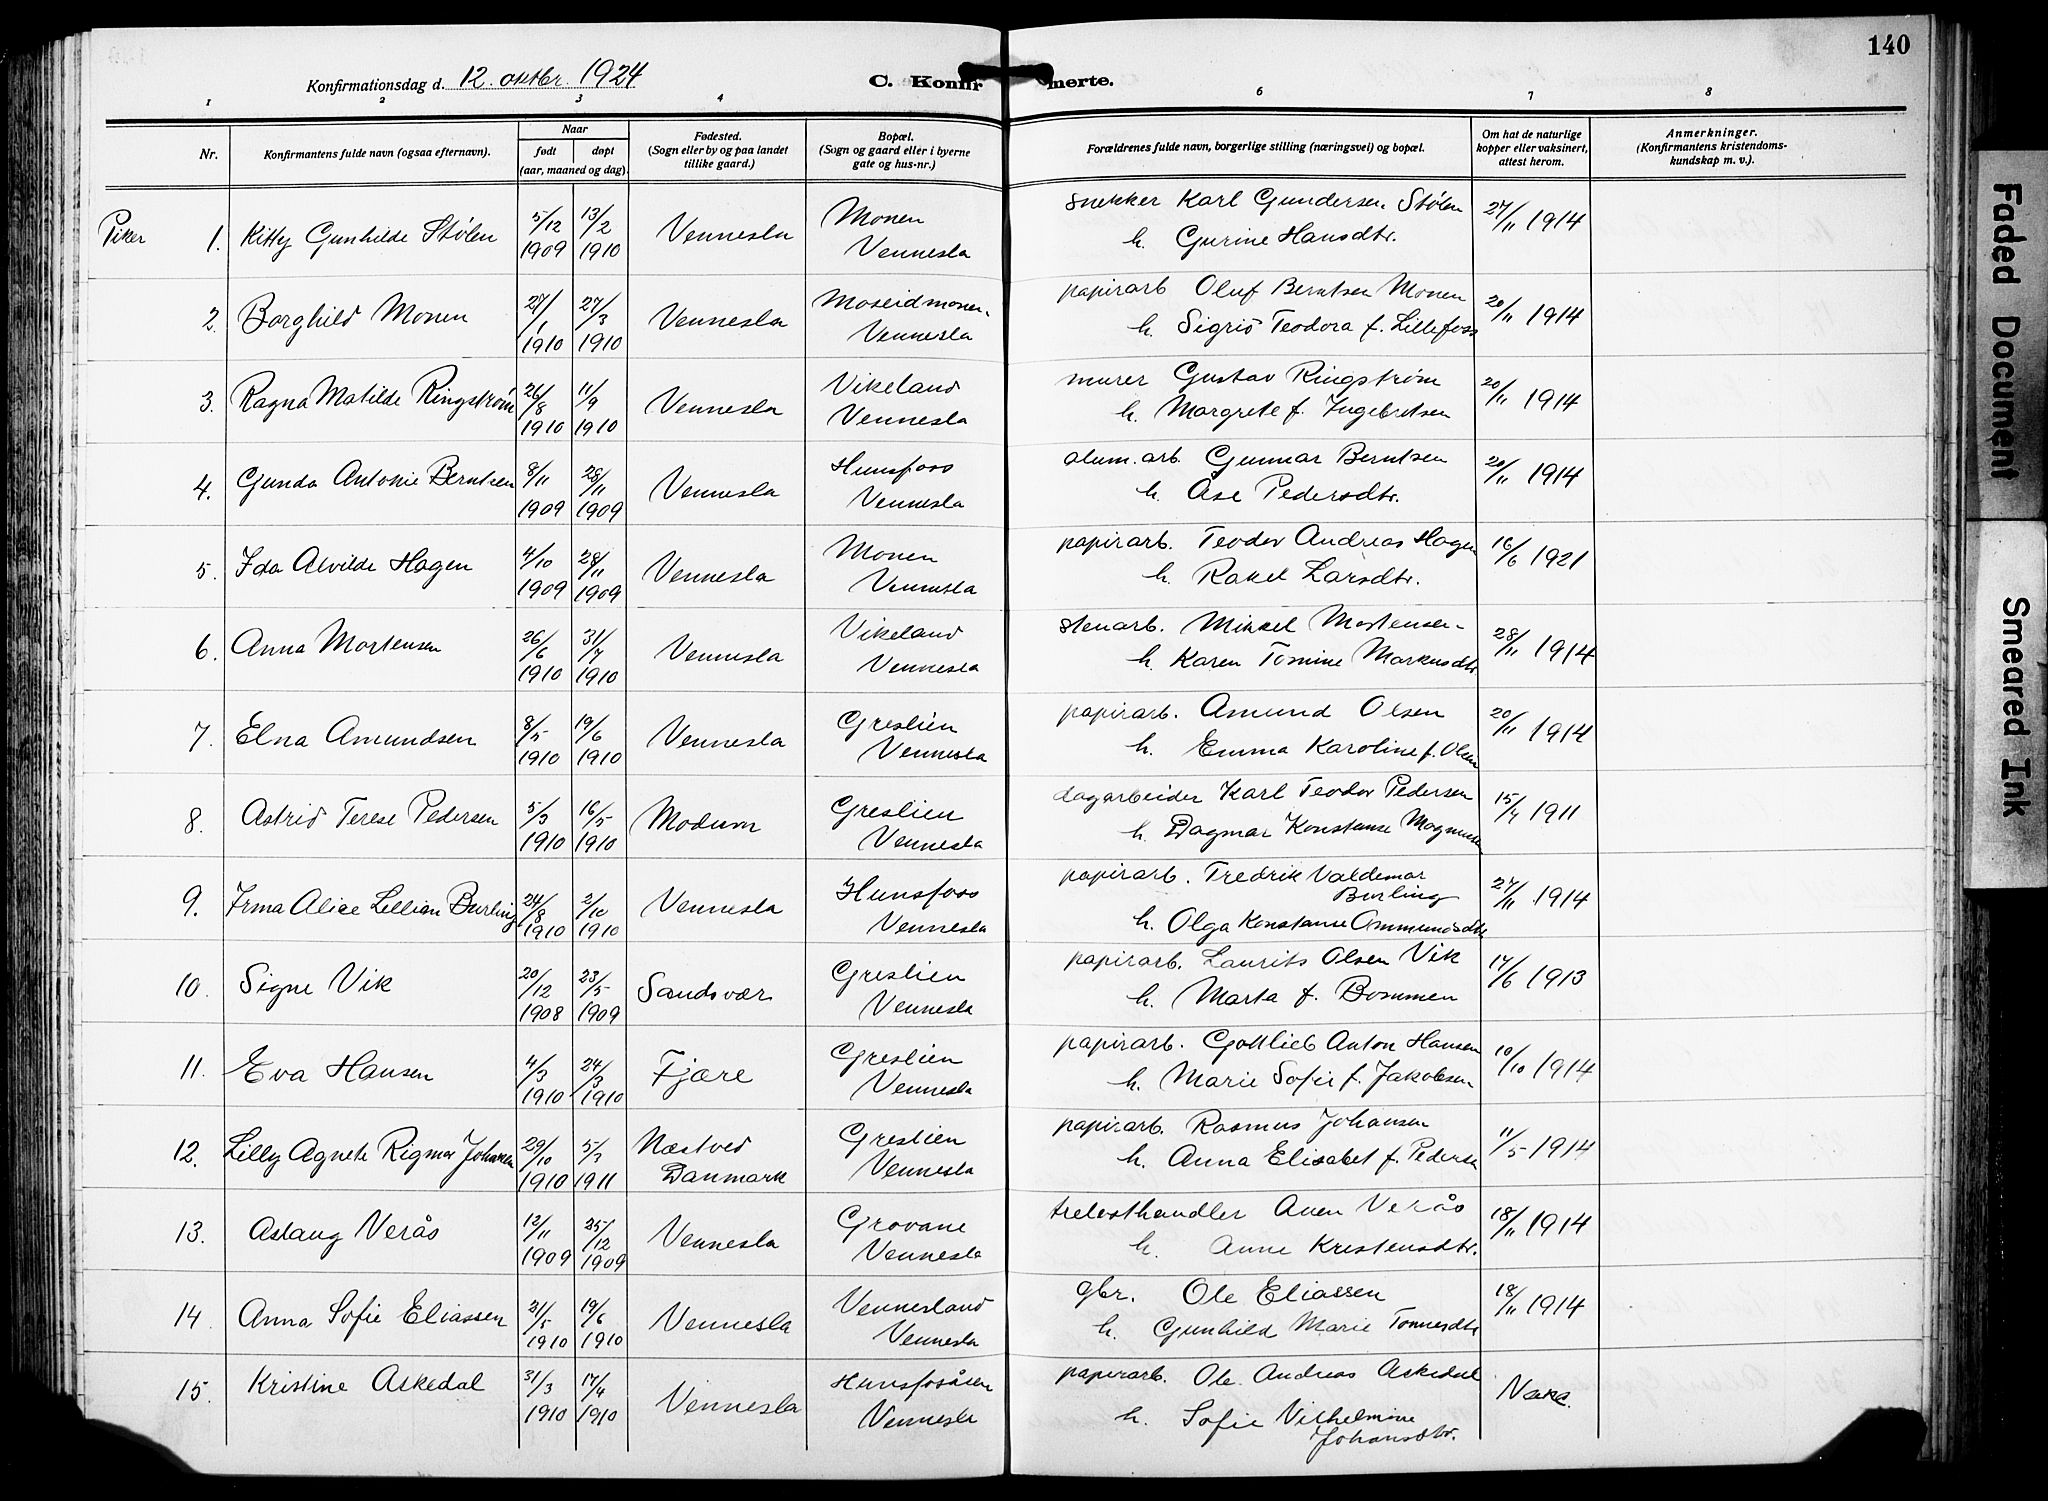 140
Konfirmationsdag d. 12. oktbr. 1924
C. Konfirmerte.
1 2 3 4 5 6 7 8
Nr.
Konfirmantens fulde navn (ogsaa efternavn).
Naar
født døpt
(aar, maaned og dag).
Fødested.
(Sogn eller by og paa landet
tillike gaard.)
Bopæl.
(Sogn og gaard eller i byerne
gate og hus-nr.)
Forældrenes fulde navn, borgerlige stilling (næringsvei) og bopæl.
Om hat de naturlige
kopper eller vaksinert,
attest herom.
Anmerkninger.
(Konfirmantens kristendoms-
kundskap m. v.).
Piker
1. Kitty Gunhilde Stølen 5/12 1909 13/2 1910 Vennesla Monen Vennesla snekker Karl Gundersen Stølen 27/11 1914
h. Gurine Hansdtr.
2. Borghild Monen 27/1 1910 27/3 1910 Vennesla Moseidmonen Vennesla papirarb Oluf Berntsen Monen 20/11 1914
h. Sigrid Teodora f. Lillefoss
3. Ragna Matilde Ringstrøm 26/8 1910 11/9 1910 Vennesla Vikeland Vennesla murer Gustav Ringstrøm 20/11 1914
h. Margrete f. Ingebretsen
4. Gunda Antonie Berntsen 8/11 1909 28/11 1909 Vennesla Hunsfoss Vennesla alum. arb. Gunnar Berntsen 20/11 1914
h. Åse Pedersdtr.
5. Ida Alvilde Hagen 4/10 1909 28/11 1909 Vennesla Monen Vennesla papirarb. Teodor Andreas Hagen 16/6 1921
h. Rakel Larsdtr.
6. Anna Mortensen 26/6 1910 31/7 1910 Vennesla Vikeland Vennesla stenarb. Mikkel Mortensen 28/11 1914
h. Karen Tomine Markusdtr
7. Elna Amundsen 8/5 1910 19/6 1910 Vennesla Greslien Vennesla papirarb. Amund Olsen 20/11 1914
h. Emma Karoline f. Olsen
8. Astrid Terese Pedersen 5/3 1910 16/5 1910 Modum Greslien Vennesla dagarbeider Karl Teodor Pedersen 15/4 1911
h. Dagmar Konstanse
9. Irma Alice Lillian Burling 24/8 1910 2/10 1910 Vennesla Hunsfoss Vennesla papirarb. Fredrik Valdemar 27/11 1914
Burling
h. Olga Konstanse Ammundsdtr
10. Signe Vik 20/12 1908 23/5 1909 Sandsvær Greslien Vennesla papirarb. Laurits Olsen Vik 17/6 1913
h. Marta f. Bommen
11. Eva Hansen 4/3 1910 24/3 1910 Fjære Greslien Vennesla papirarb. Gottlieb Anton Hansen 10/10 1914
h. Marie Sofie f. Jakobsen
12. Lilly Agnete Rigmor Johansen 29/10 1910 5/3 1911 Næstved Danmark Greslien Vennesla papirarb. Rasmus Johansen 11/5 1914
h. Anna Elisabet f. Pedersen
13. Aslaug Verås 12/11 1909 25/12 1909 Vennesla Grovane Vennesla trelasthandler Aven Verås 18/11 1914
h. Anne Kristensdtr.
14 Anna Sofie Eliassen 21/5 1910 19/6 1910 Vennesla Vennesland Vennesla gbr. Ole Eliassen 18/11 1914
h. Gunhild Marie Tonnesdtr
15. Kristine Askedal 31/3 1910 17/4 1910 Vennesla Hunsfosåsen Vennesla papirarb. Ole Andreas Askedal Vaks.
h. Sofie Vilhelmine
Johansdtr.
Faded Document
Smeared Ink